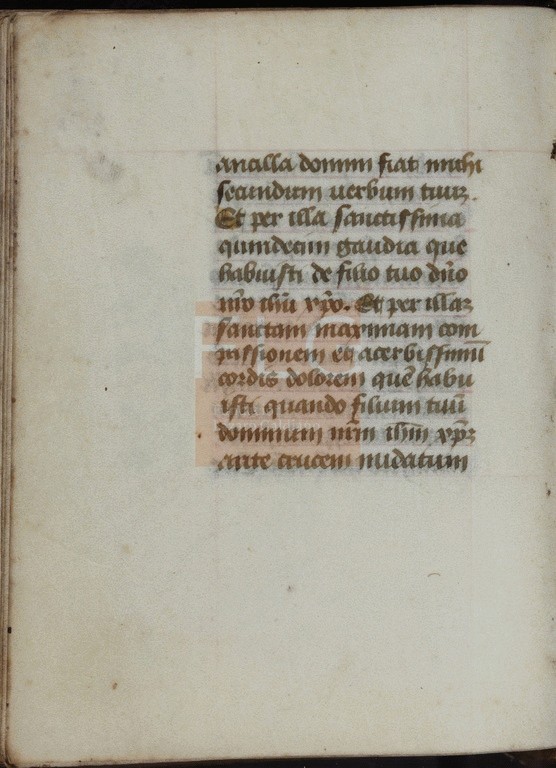 ancilla domini fiat michi
secundum uerbum tuuꝫ.
Et per illa sanctissima
quindecim gaudia que
habuisti de filio tuo dn̄o
nr̄o ih̄u xp̄o. Et per illaꝫ
sanctam maximam com
passionem et acerbissimū
cordis dolorem quē habu
isti quando filium tuū
dominum nr̄m ih̄m xp̄ꝫ
ante crucem nudatum